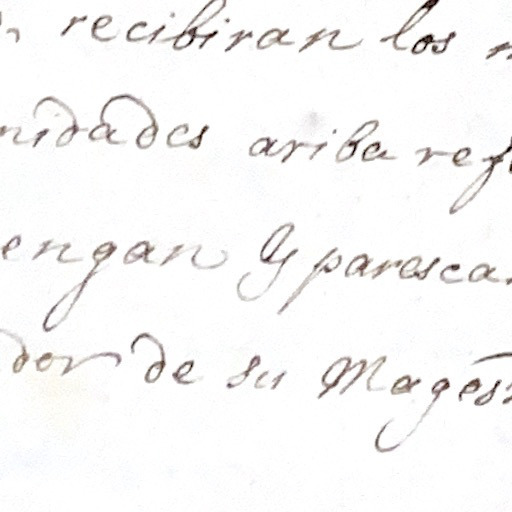 recibiran los
nidades ariba ref
engan Y parescan
dor de su Mages